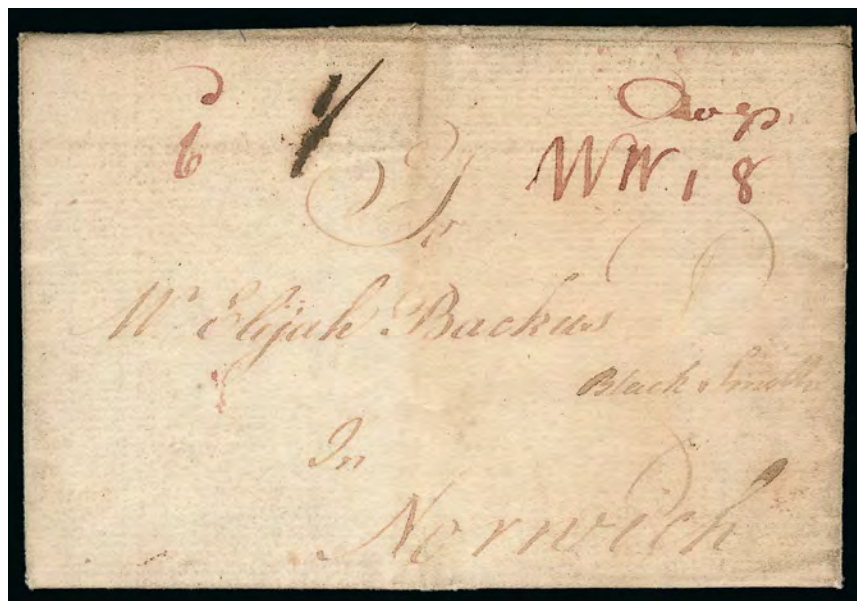 6
WW. 1 8
To
Mr Elijah Backus
Black Smith
In
Norwich